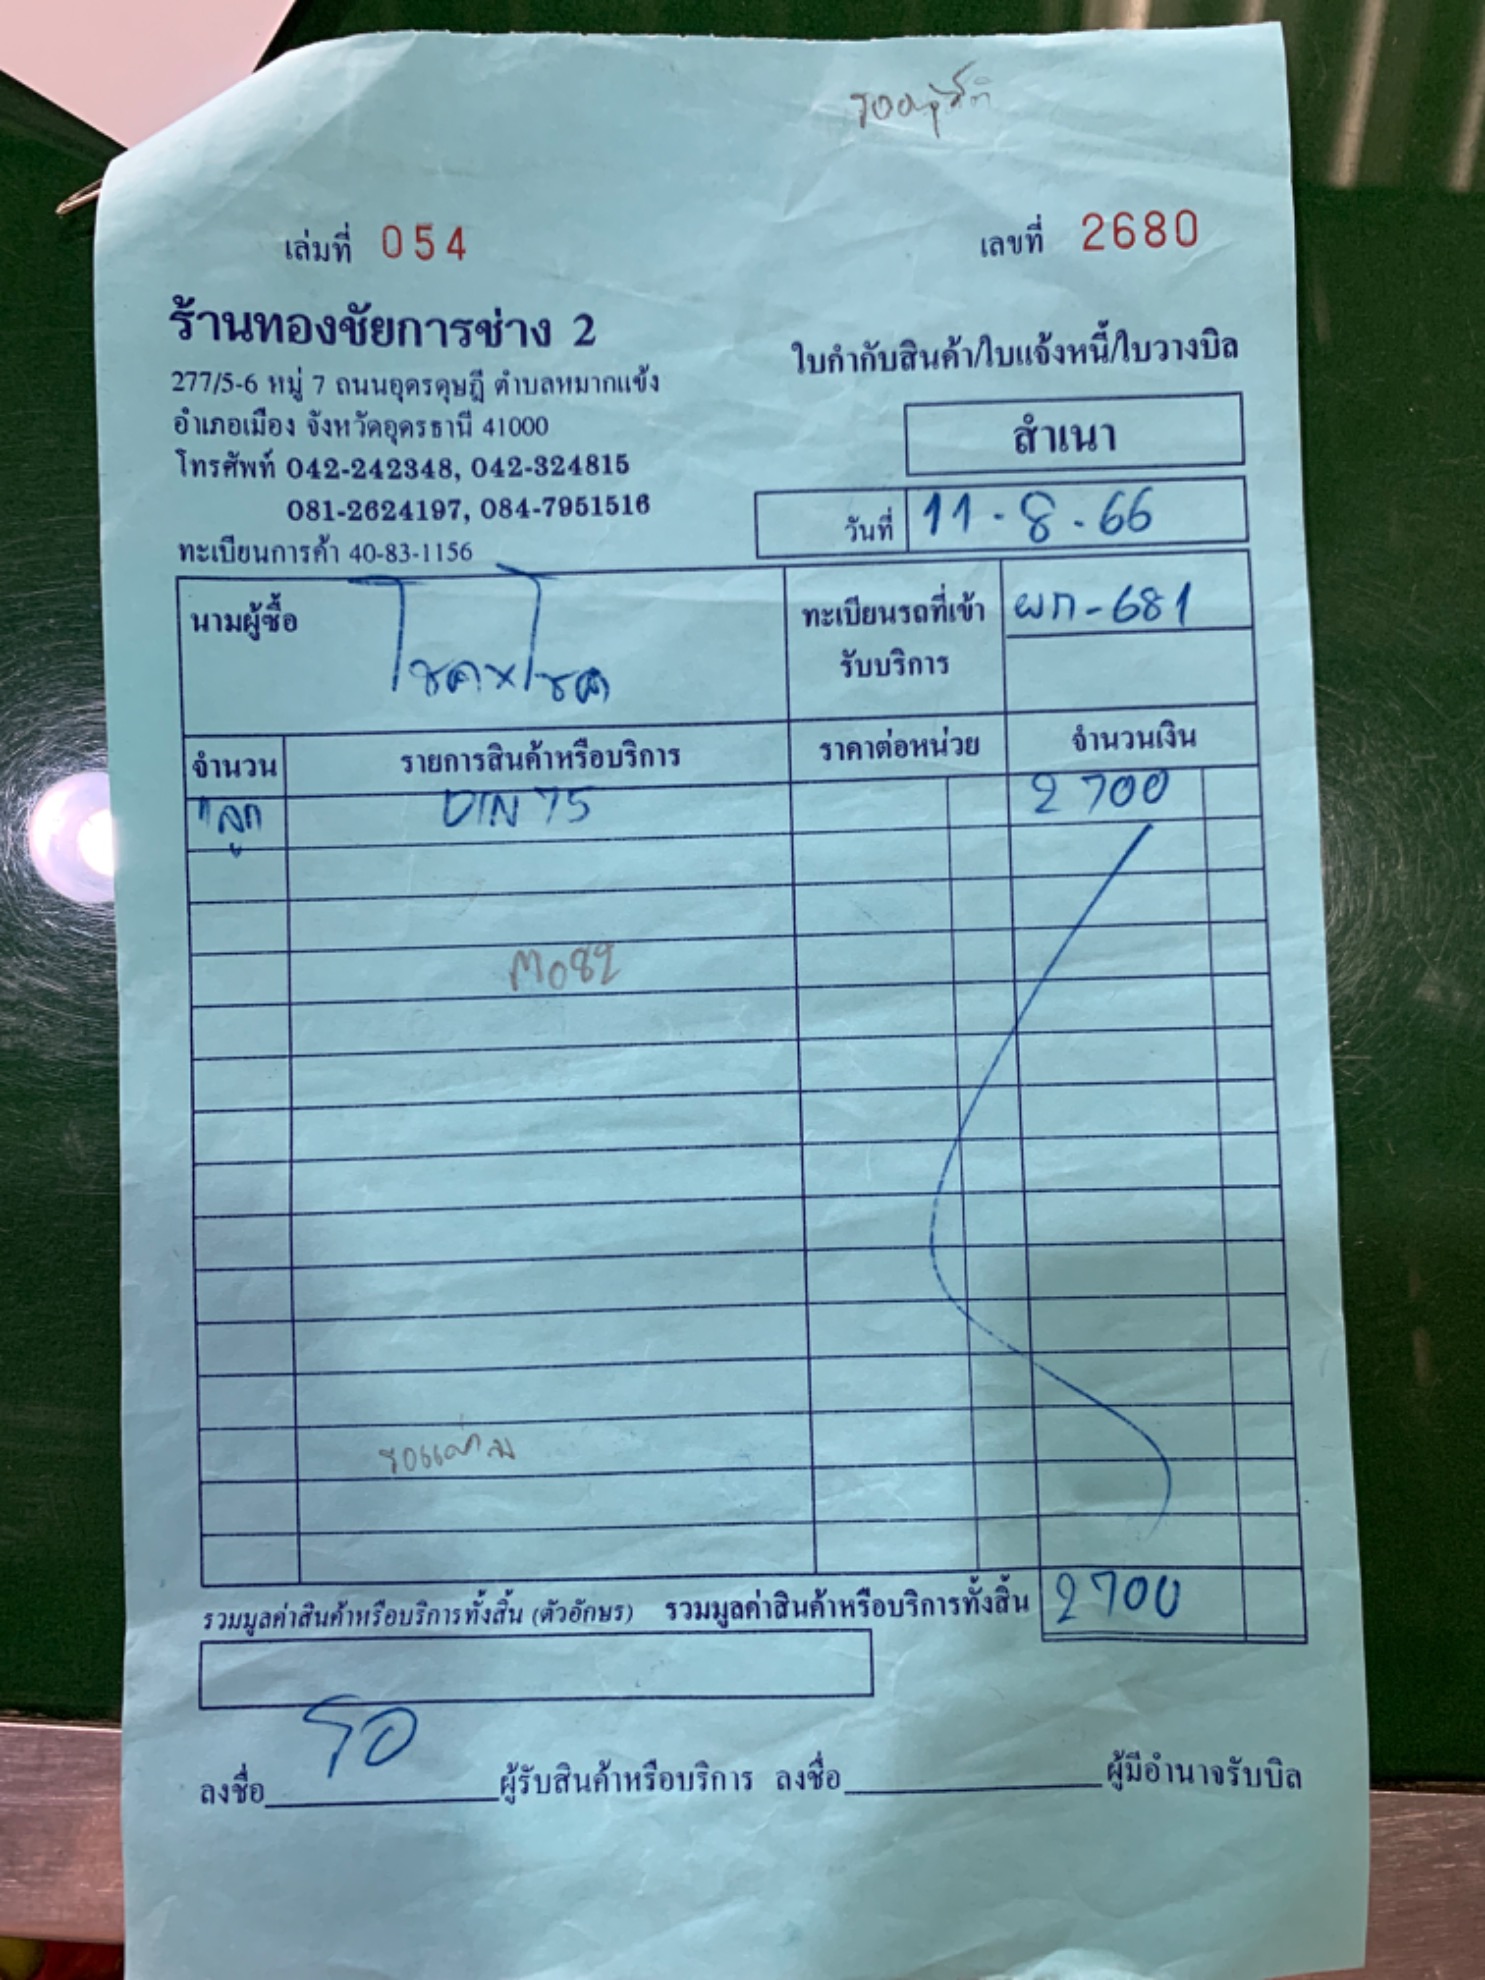 เล่มที่ 054
เลขที่ 2680
ร้านทองชัยการช่าง 2
277/5-6 หมู่ 7 ถนนอุดรดุษฎี ตำบลหมากแข้ง
อำเภอเมือง จังหวัดอุดรธานี 41000
โทรศัพท์ 042-242348, 042-324815
081-2624197, 084-7951516
ทะเบียนการค้า 40-83-1156
ใบกำกับสินค้า/ใบแจ้งหนี้/ใบวางบิล
สำเนา
วันที่ 11-8-66
นามผู้ซื้อ โชค×โชค
ทะเบียนรถที่เข้า
รับบริการ
ผก-681
จำนวน รายการสินค้าหรือบริการ ราคาต่อหน่วย จำนวนเงิน
1 ลูก DIN 75 2700
M082
รวมมูลค่าสินค้าหรือบริการทั้งสิ้น (ตัวอักษร) รวมมูลค่าสินค้าหรือบริการทั้งสิ้น 2700
ลงชื่อ ผู้รับสินค้าหรือบริการ ลงชื่อ ผู้มีอำนาจรับบิล